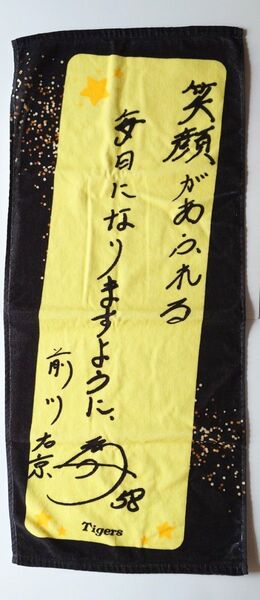 笑顔があふれる
毎日になりますように、
前川右京
58
Tigers